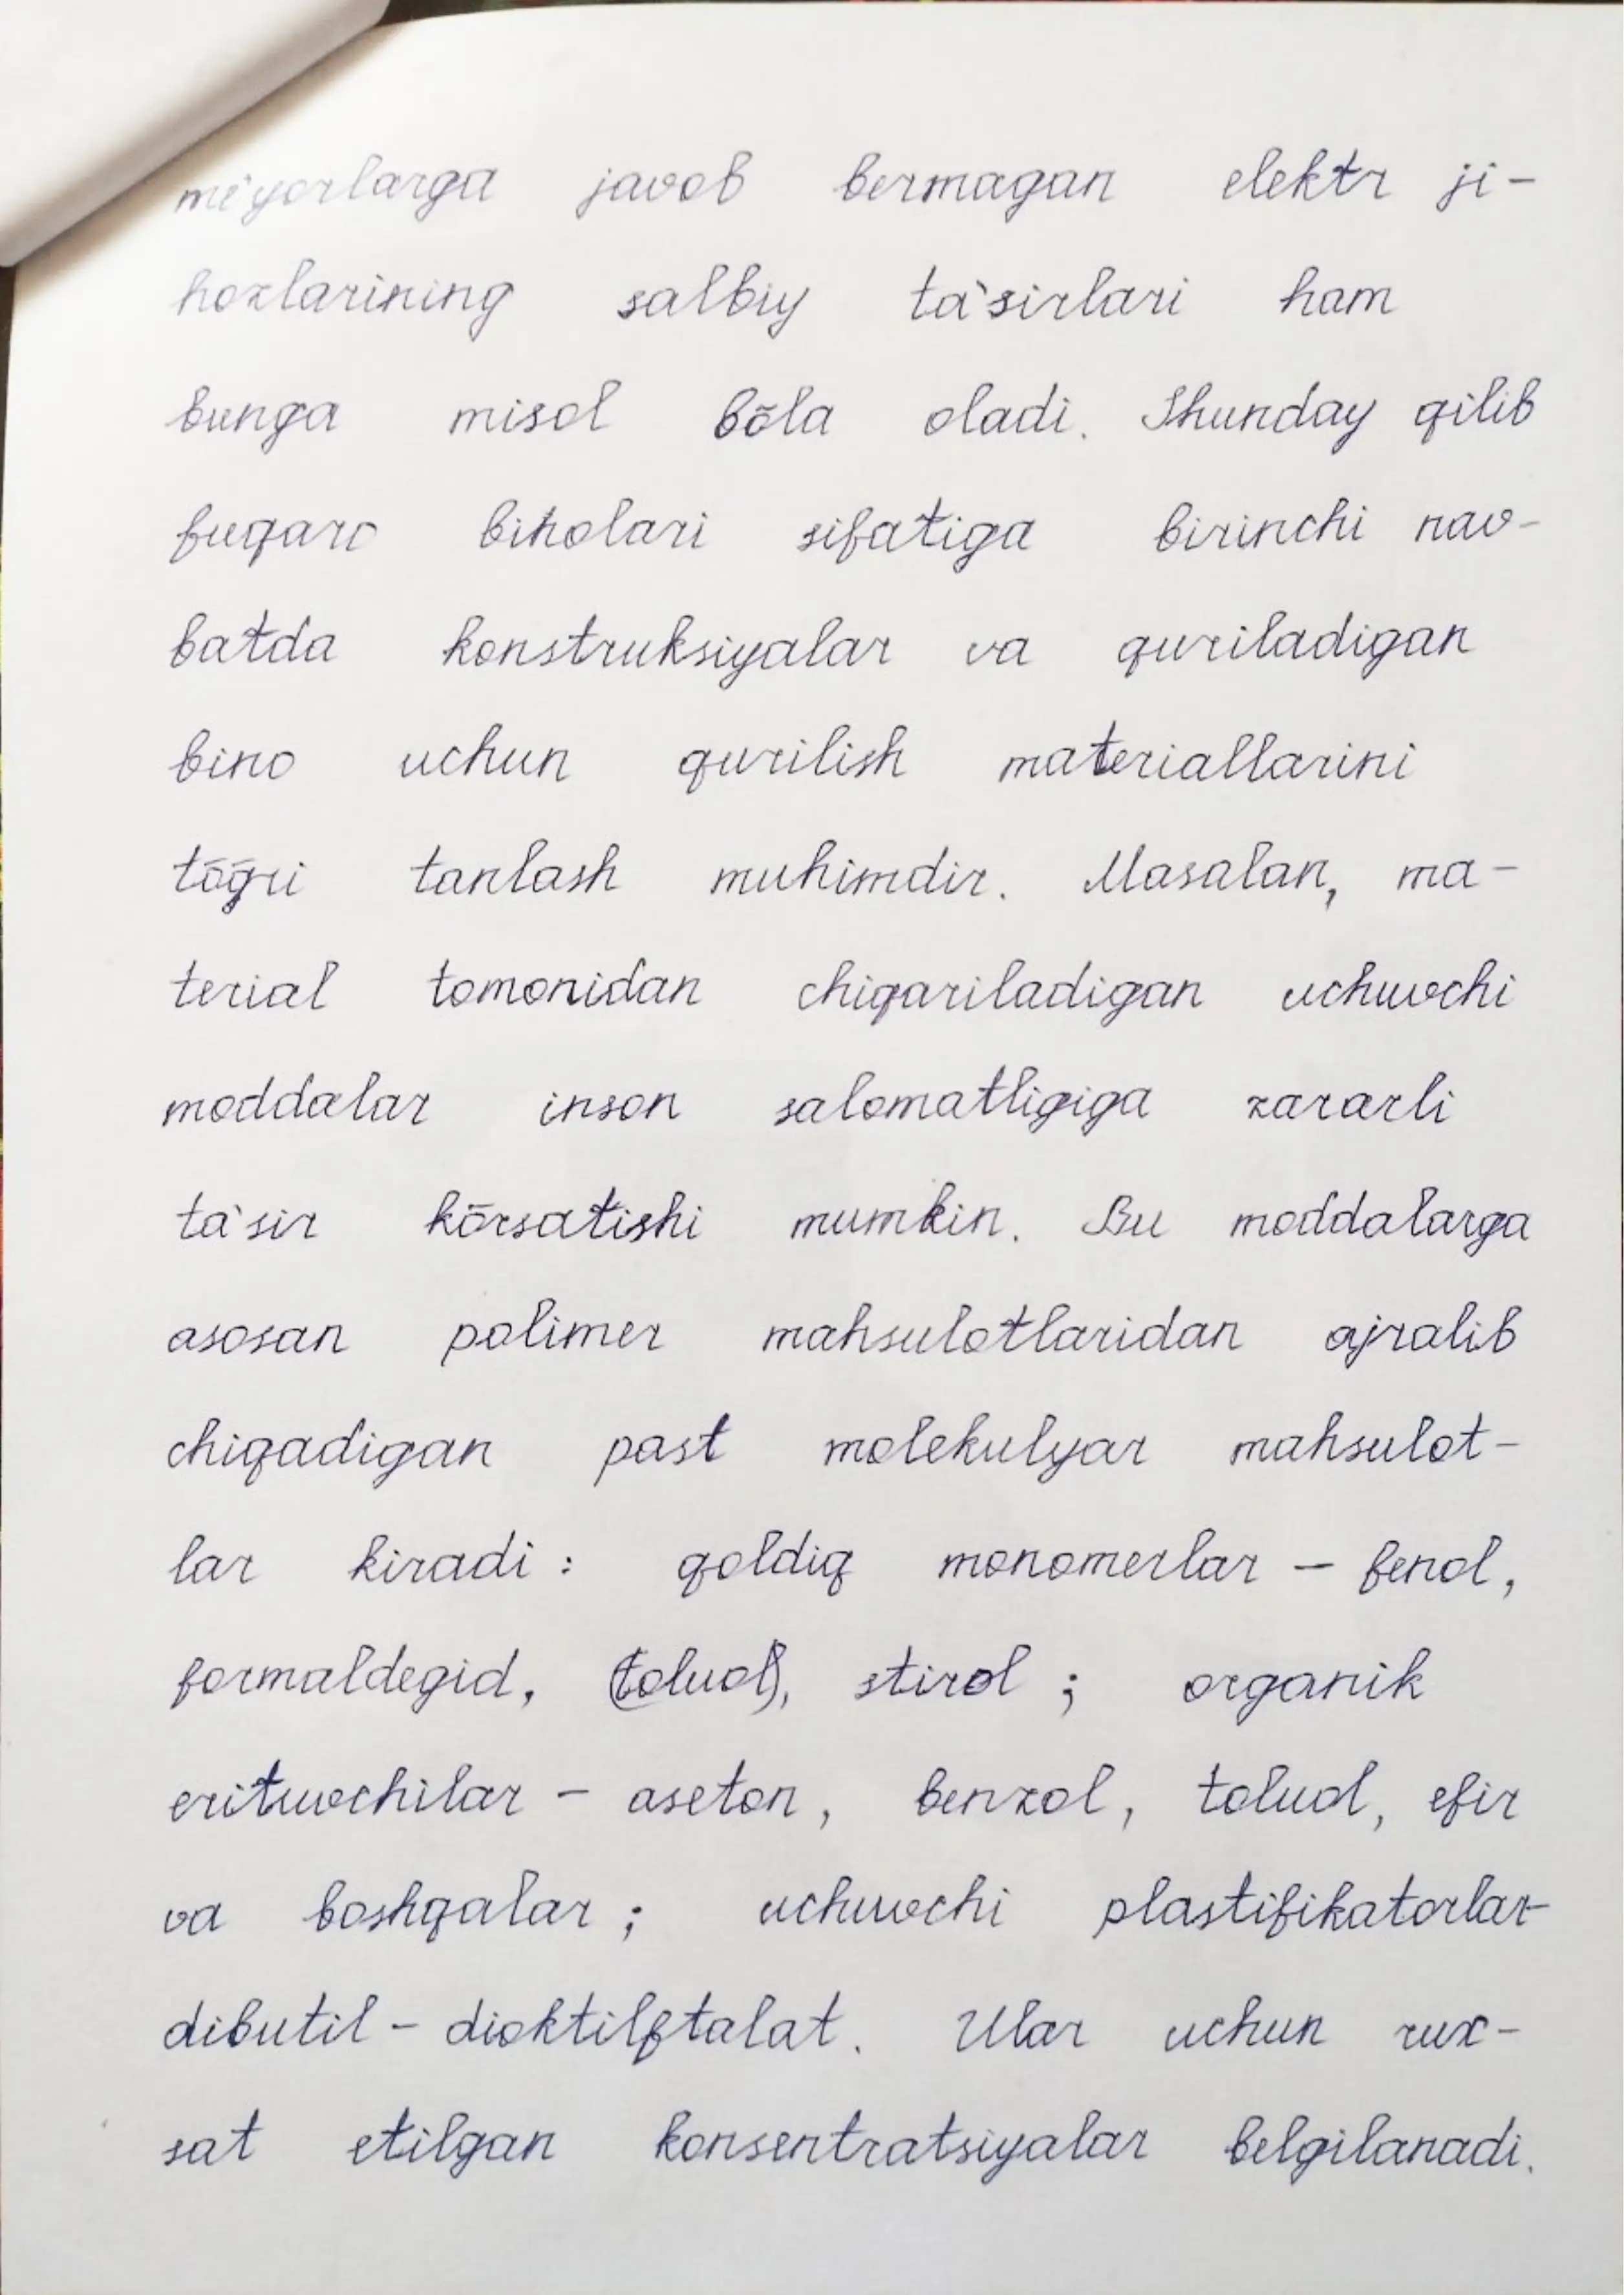 me'yorlarga javob bermagan elektr ji-
hozlarining salbiy ta'sirlari ham
bunga misol bōla oladi. Shunday qilib
fuqaro binolari sifatiga birinchi nav-
batda konstruksiyalar va quriladigan
bino uchun qurilish materiallarini
tōḡri tanlash muhimdir. Masalan, ma-
terial tomonidan chiqariladigan uchuvchi
moddalar inson salomatligiga zararli
ta'sir kōrsatishi mumkin. Bu moddalarga
asosan polimer mahsulotlaridan ajralib
chiqadigan past molekulyar mahsulot-
lar kiradi: qoldiq monomerlar - fenol,
formaldegid, (toluol), stirol; organik
erituvchilar - aseton, benzol, toluol, efir
va boshqalar; uchuvchi plastifikatorlar-
dibutil - dioktilftalat. Ular uchun rux-
sat etilgan konsentratsiyalar belgilanadi.